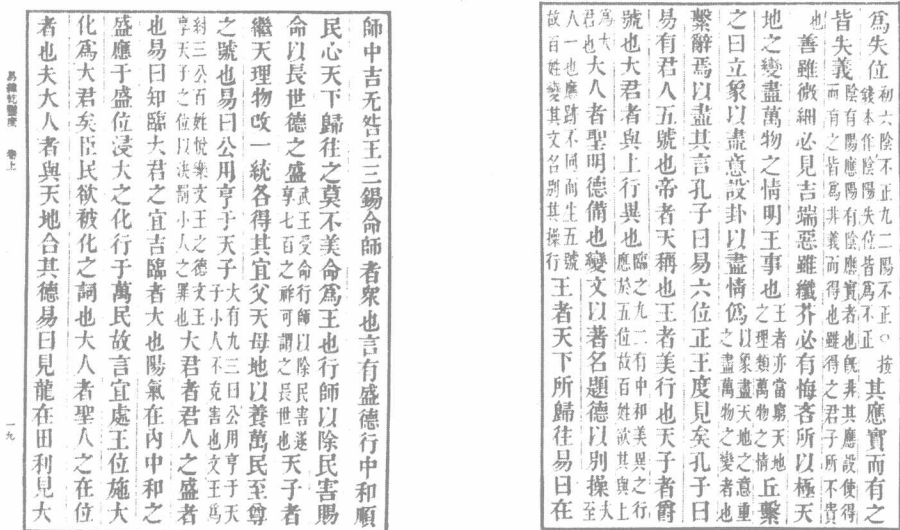 爲失位初六陰不正九二陽不正○按錢本作陰陽失位皆爲不正其應實而有之
皆失義陰有陽應陽有陰應實者也旣非其應設使得而有之皆爲非義而得也雖得之君子所不貴
也善雖微細必見吉端惡雖纖芥必有悔吝所以極天
地之變盡萬物之情明王事也王者亦當窮天地之理類萬物之情丘繫
之曰立象以盡意設卦以盡情僞以象盡天地之意重之盡萬物之變者也
繫辭焉以盡其言孔子曰易六位正王度見矣孔子曰
易有君人五號也帝者天稱也王者美行也天子者爵
號也大君者與上行異也臨之九二有中和美異之行應於五位故百姓欲其與上
爲大君也大人者聖明德備也變文以著名題德以別操夫至
人一也應跡不同而生五號故百姓變其文名別其操行王者天下所歸往易曰在
師中吉无咎王三錫命師者衆也言有盛德行中和順
民心天下歸往之莫不美命爲王也行師以除民害賜
命以長世德之盛武王受命行師以除民害遂享七百之祚可謂之長世也天子者
繼天理物改一統各得其宜父天母地以養萬民至尊
之號也易曰公用亨于天子大有九三曰公用亨于天子小人不克害也文王爲
紂三公百姓悅樂文王之德文王享天子之位以決罰小人之罪也大君者君人之盛者
也易曰知臨大君之宜吉臨者大也陽氣在內中和之
盛應于盛位浸大之化行于萬民故言宜處王位施大
化爲大君矣臣民欲被化之詞也大人者聖人之在位
者也夫大人者與天地合其德易曰見龍在田利見大
易緯乾鑿度 卷上
一九